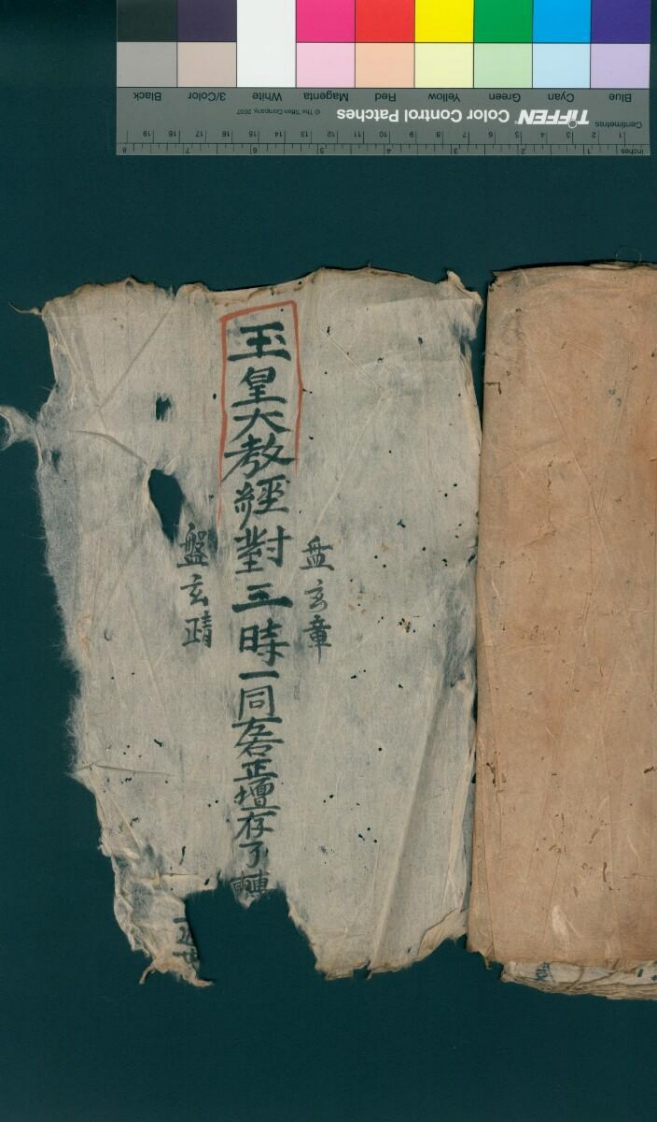 Blue Cyan Green Yellow Red Magenta White 3/Color Black
TIFFEN Color Control Patches © The Tiffen Company, 2007
Centimetres 1 2 3 4 5 6 7 8 9 10 11 12 13 14 15 16 17 18 19
Inches 1 2 3 4 5 6 7 8
盘玄章
玉皇大教經對三時一同
正壇存了
盤玄